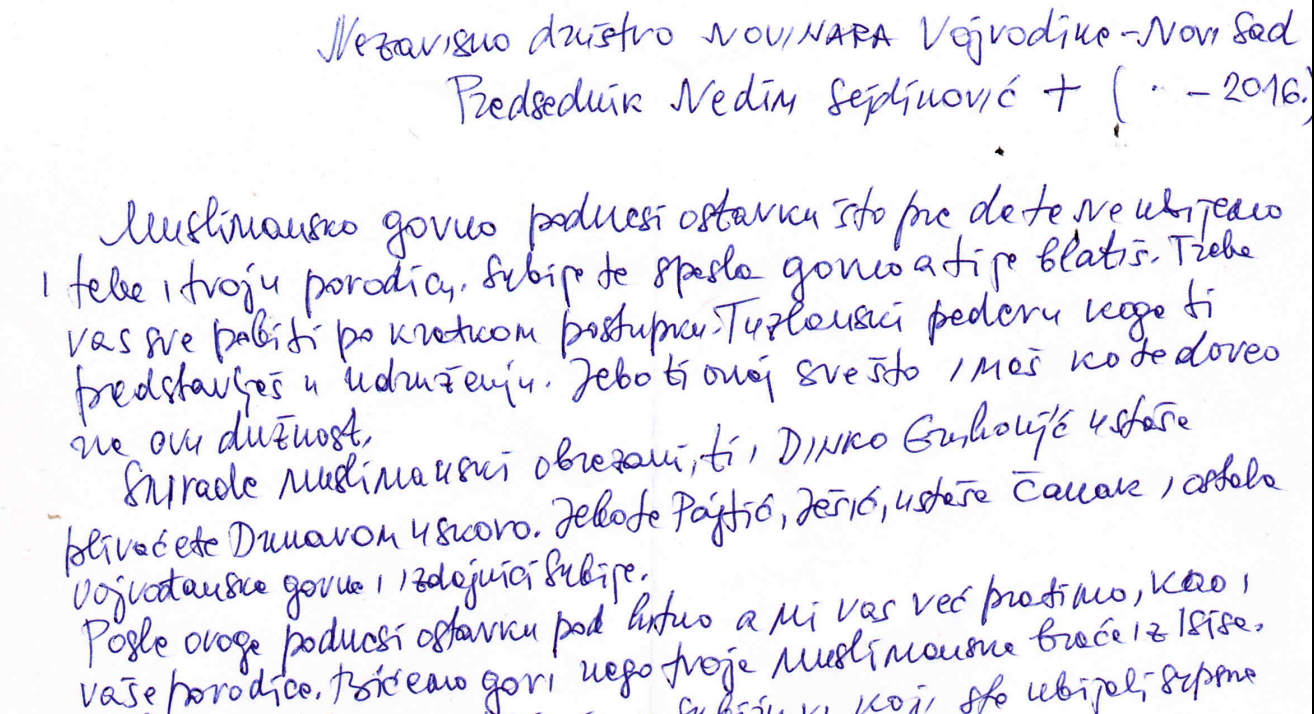 Nezavisno društvo NOVINARA Vojvodine - Novi Sad
Predsednik Nedim Sejdinović + ( · - 2016.)
Muslimansko govno podnesi ostavku što pre da te ne ubijemo
i tebe i tvoju porodicu. Srbija te spasla govno a ti je blatiš. Treba
vas sve pobiti po kratkom postupku. Tuzlanski pederu koga ti
predstavljaš u udruženju. Jebo ti onaj sve što imaš ko te doveo
na ovu dužnost.
Smrade muslimanski obrezani, ti i DINKO Gruhonjić ustaše
plivaćete Dunavom uskoro. Jebo te Pajtić, Ješić, ustaša Čanak i ostala
vojvođanska govna i izdajnici Srbije.
Posle ovoga podnesi ostavku pod hitno a mi vas već pratimo, kao i
vaše porodice. Bićemo gori nego tvoje muslimanska braća iz Isisa.
koji ste ubijali srpsne